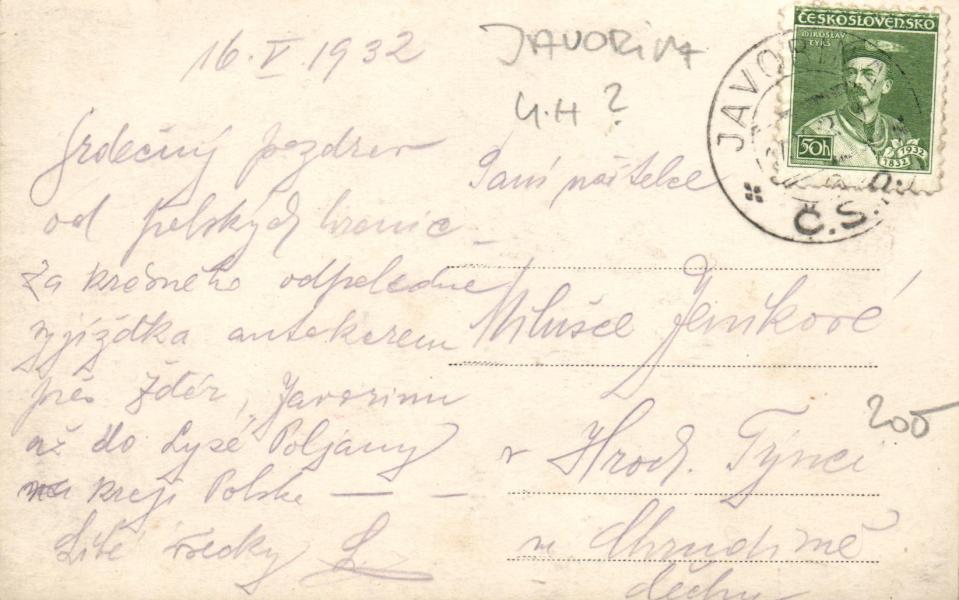 16.V.1932
JAVORINA
U.H?
Srdečný pozdrav
od polských hranic
Za krásného odpoledne
vyjížďka autokarem
přes Ždár, Javorinu
až do Lysé Poljany
na kraji Polska — —
Líbá všecky
Paní učitelce
Milušce Jeníkové
v Hroch. Týnci
u Chrudimě
Čechy
200
ČESKOSLOVENSKO
MIROSLAV
TYRŠ
50h
1832
1932
JAVORINA
Č.S.